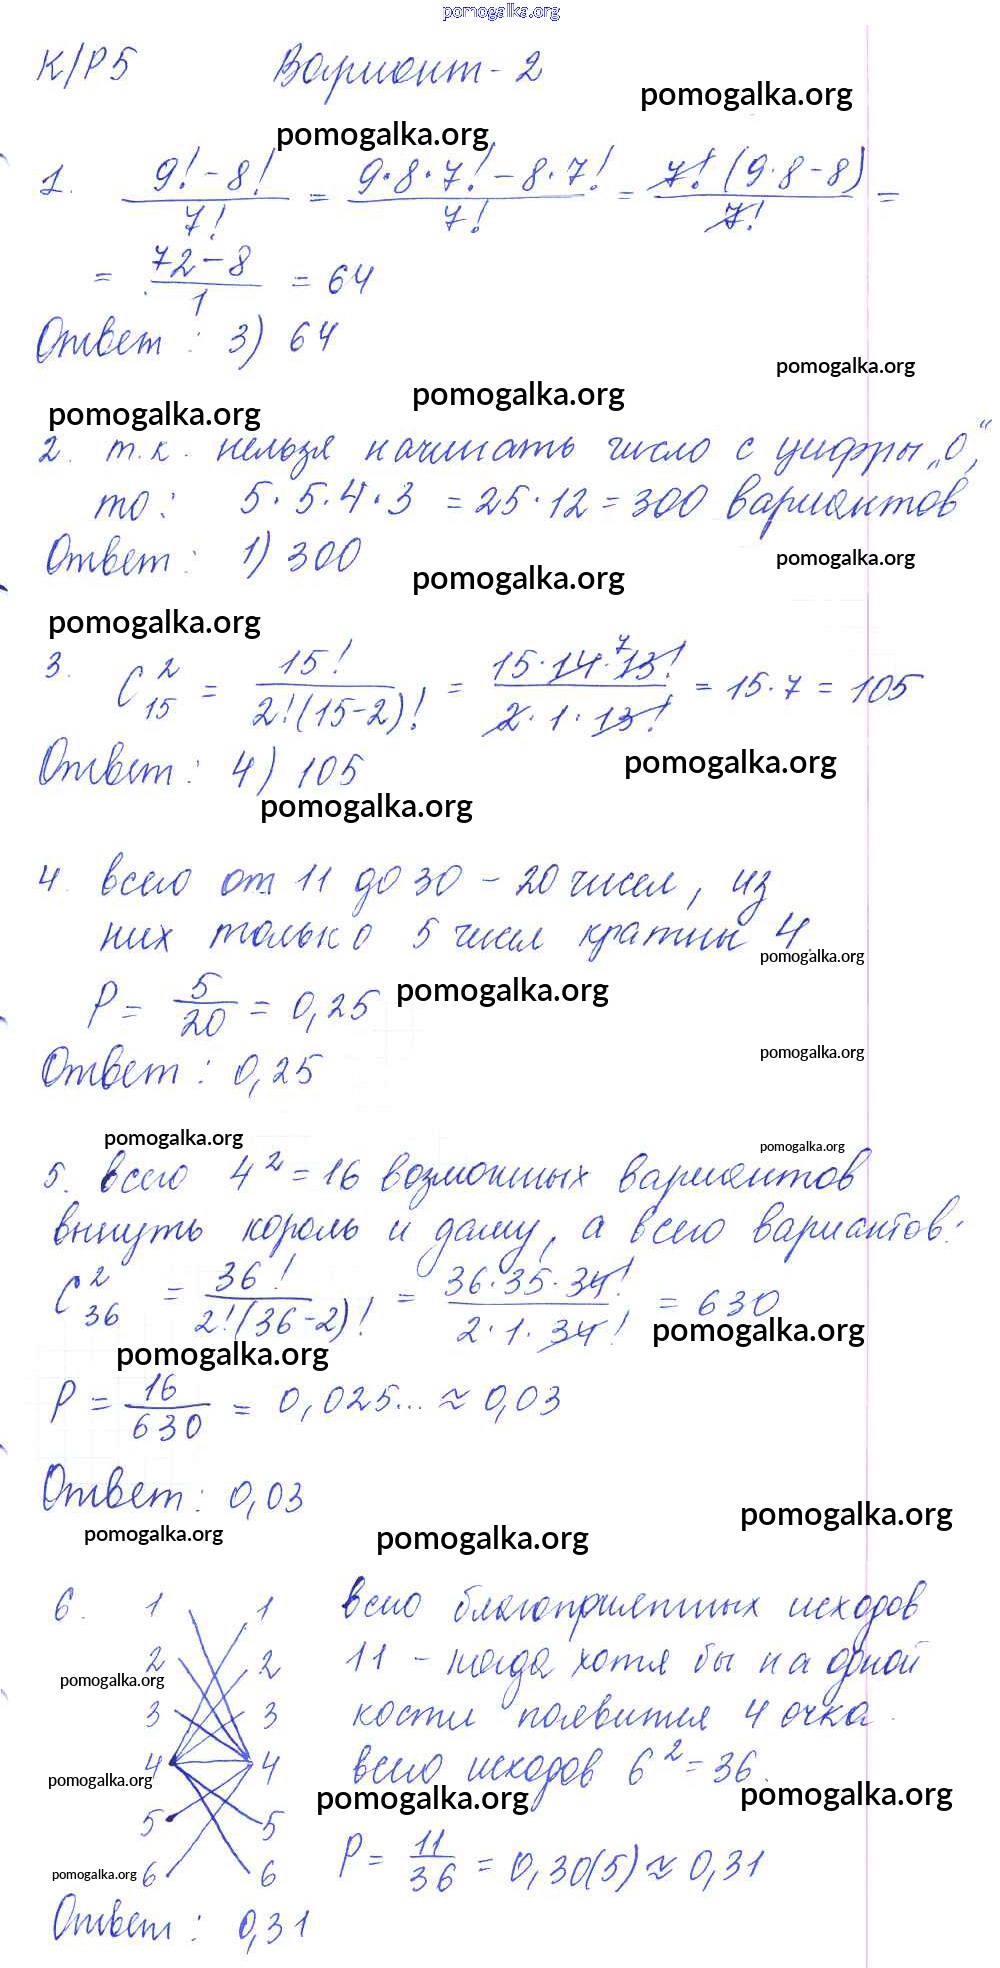 pomogalka.org
К/Р 5 Вариант - 2
pomogalka.org
pomogalka.org
1. (9! - 8!)/7! = (9·8·7! - 8·7!)/7! = 7!(9·8 - 8)/7! =
= (72 - 8)/1 = 64
Ответ : 3) 64
pomogalka.org
pomogalka.org
pomogalka.org
2. т.к. нельзя начинать число с цифры „0“,
то: 5·5·4·3 = 25·12 = 300 вариантов
Ответ: 1) 300
pomogalka.org
pomogalka.org
pomogalka.org
3. C₁₅² = 15!/(2!(15-2)!) = (15·14·13!)/(2·1·13!) 7 = 15·7 = 105
Ответ: 4) 105
pomogalka.org
pomogalka.org
4. всего от 11 до 30 - 20 чисел, из
них только 5 чисел кратны 4
pomogalka.org
P = 5/20 = 0,25
pomogalka.org
Ответ: 0,25
pomogalka.org
pomogalka.org
pomogalka.org
5. всего 4² = 16 возможных вариантов
вынуть король и даму, а всего вариантов:
C₃₆² = 36!/(2!(36-2)!) = (36·35·34!)/(2·1·34!) = 630
pomogalka.org
pomogalka.org
P = 16/630 = 0,025... ≈ 0,03
Ответ: 0,03
pomogalka.org
pomogalka.org
pomogalka.org
6. 1 1 всего благоприятных исходов
2 2 11 - когда хотя бы на одной
pomogalka.org
3 3 кости появится 4 очка.
4 4 всего исходов 6² = 36.
pomogalka.org
pomogalka.org
pomogalka.org
5 5
6 6 P = 11/36 = 0,30(5) ≈ 0,31
pomogalka.org
Ответ: 0,31